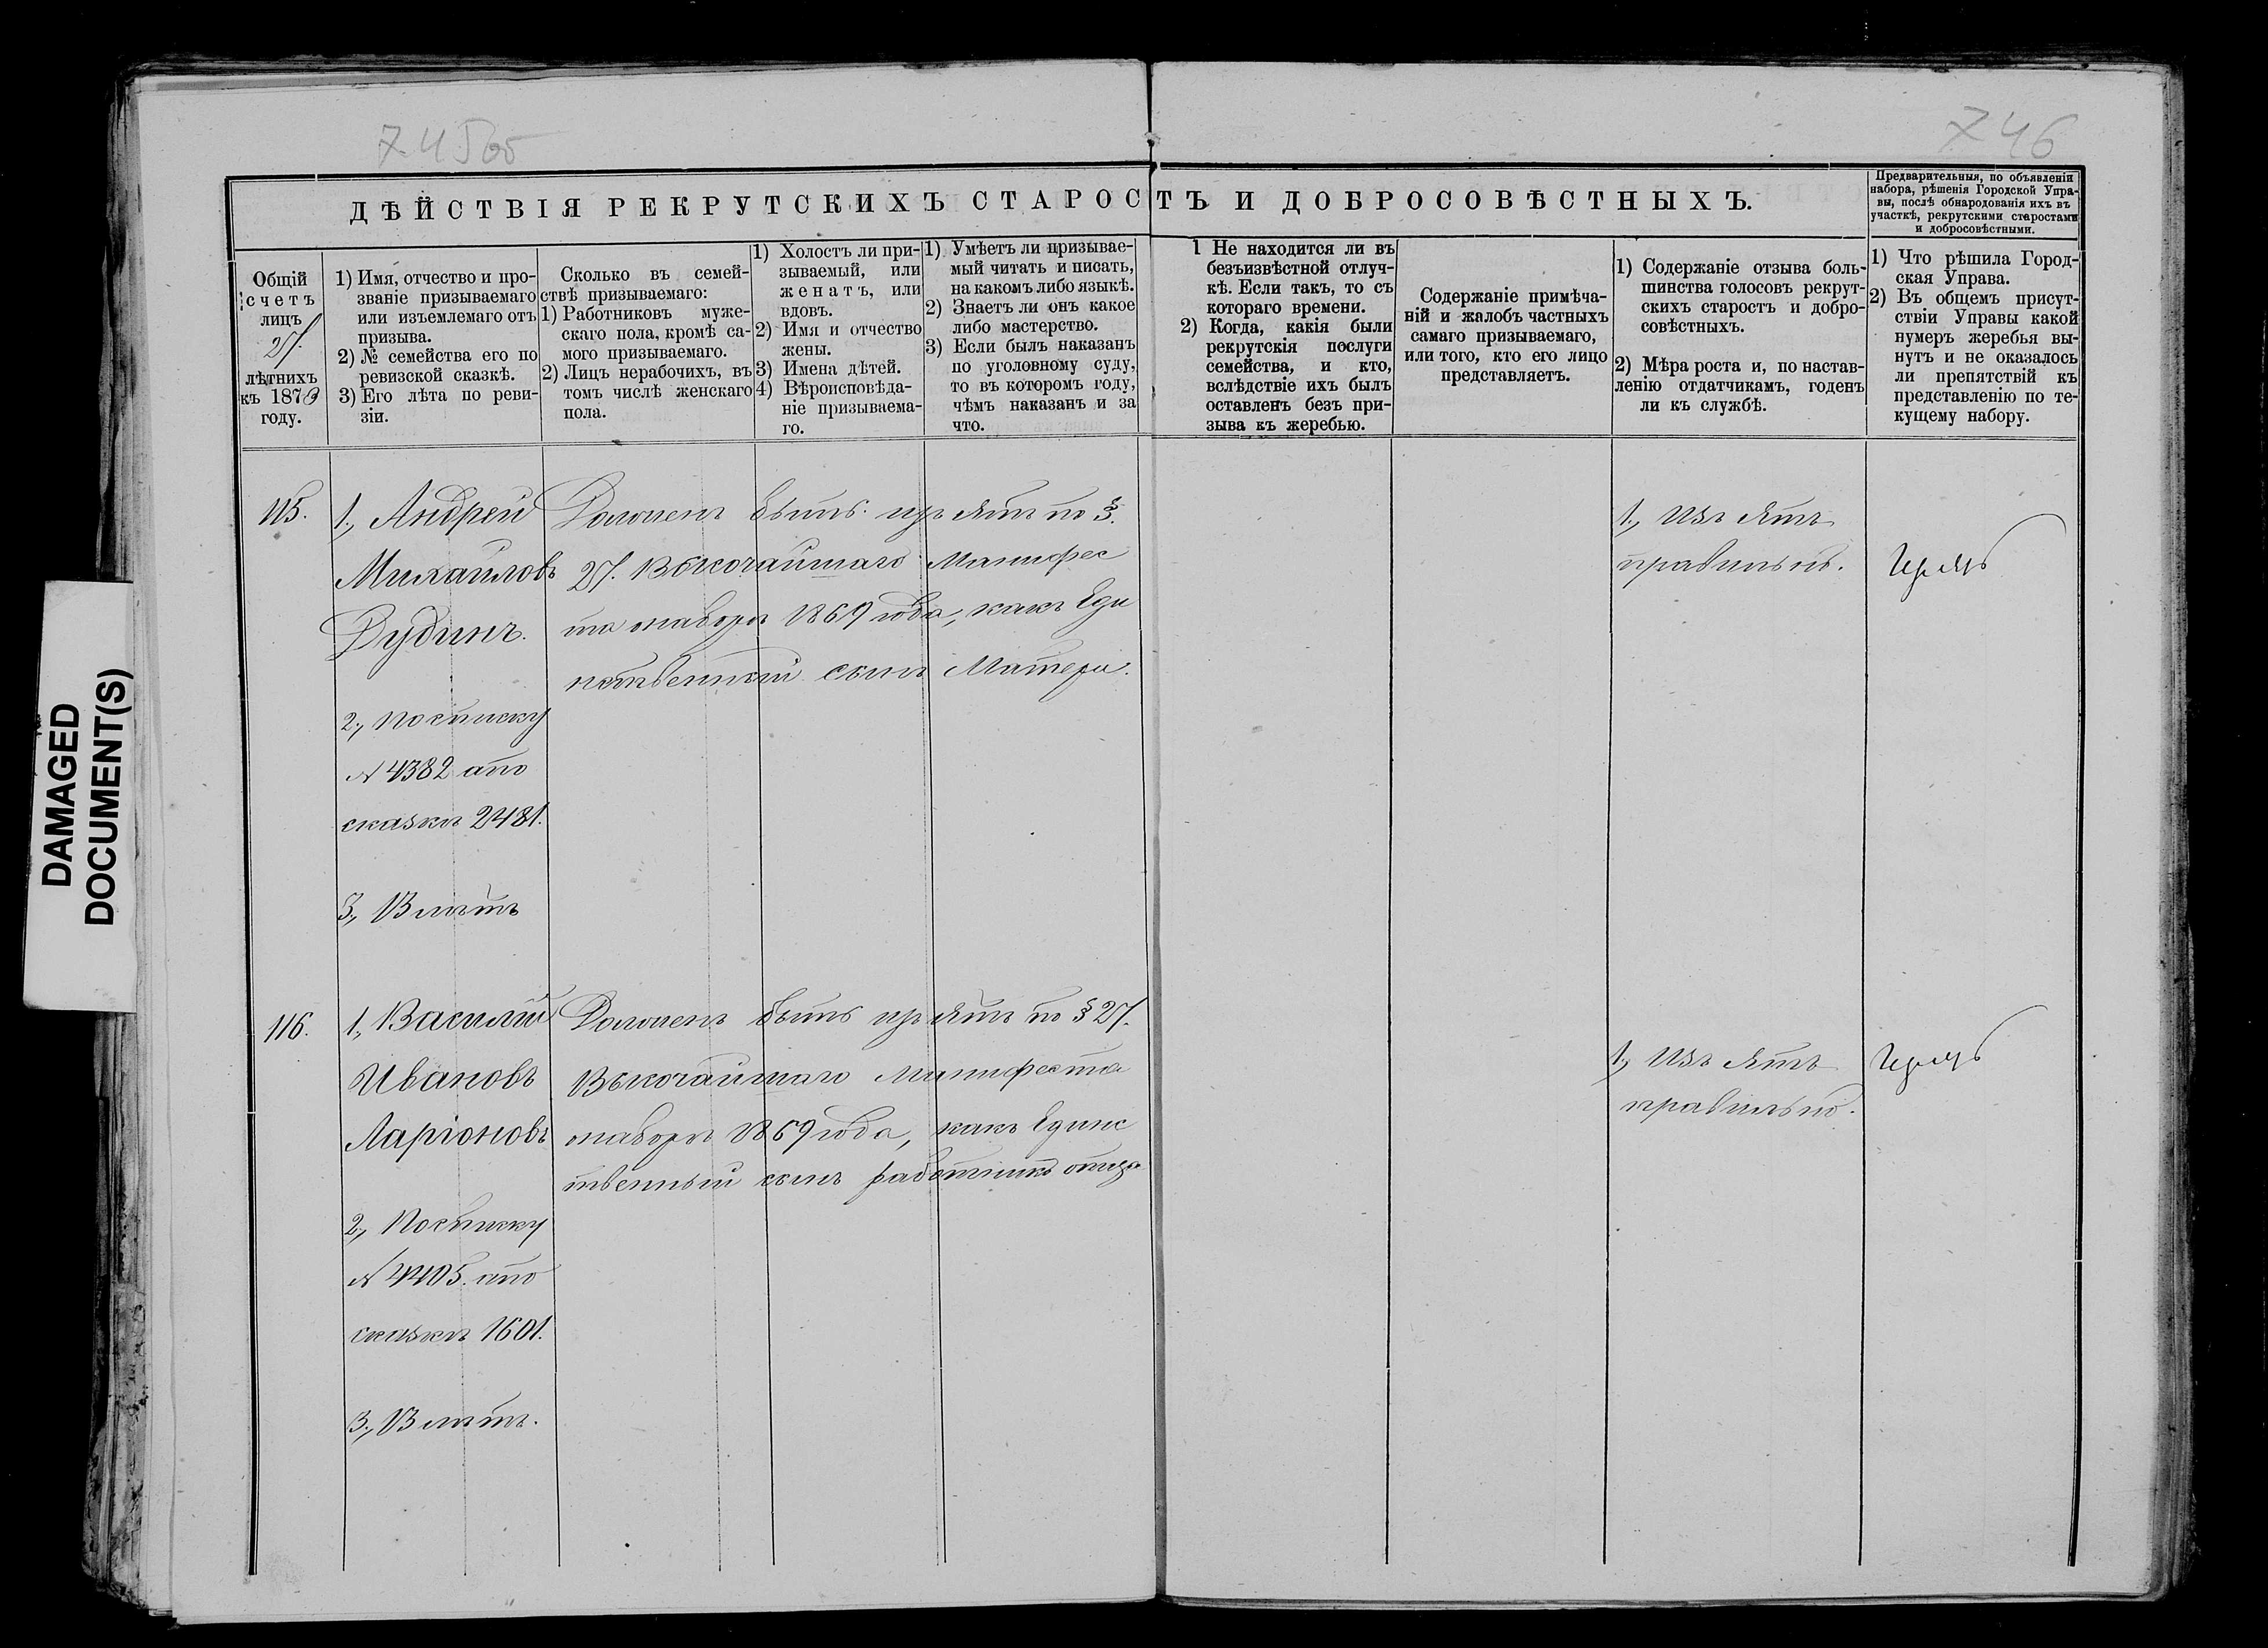 745об
746
ДѢЙСТВІЯ РЕКРУТСКИХЪ СТАРОСТЪ И ДОБРОСОВѢСТНЫХЪ.
Предварительныя, по объявленіи
набора, рѣшенія Городской Упра-
вы, послѣ обнародованія ихъ въ
участкѣ, рекрутскими старостами
и добросовѣстными.
Общій
счетъ
лицъ
21.
лѣтнихъ
къ 1870
году.
1) Имя, отчество и про-
званіе призываемаго
или изъемлемаго отъ
призыва.
2) № семейства его по
ревизской сказкѣ.
3) Его лѣта по реви-
зіи.
Сколько въ семей-
ствѣ призываемаго:
1) Работниковъ муже-
скаго пола, кромѣ са-
мого призываемаго.
2) Лицъ нерабочихъ, въ
томъ числѣ женскаго
пола.
1) Холостъ ли при-
зываемый, или
женатъ, или
вдовъ.
2) Имя и отчество
жены.
3) Имена дѣтей.
4) Вѣроисповѣда-
ніе призываема-
го.
1) Умѣетъ ли призывае-
мый читать и писать,
на какомъ либо языкѣ.
2) Знаетъ ли онъ какое
либо мастерство.
3) Если былъ наказанъ
по уголовному суду,
то въ которомъ году,
чѣмъ наказанъ и за
что.
1 Не находится ли въ
безъизвѣстной отлуч-
кѣ. Если такъ, то съ
котораго времени.
2) Когда, какія были
рекрутскія послуги
семейства, и кто,
вслѣдствіе ихъ былъ
оставленъ безъ при-
зыва къ жеребью.
Содержаніе примѣча-
ній и жалобъ частныхъ
самаго призываемаго,
или того, кто его лицо
представляетъ.
1) Содержаніе отзыва боль-
шинства голосовъ рекрут-
скихъ старостъ и добро-
совѣстныхъ.
2) Мѣра роста и, по настав-
ленію отдатчикамъ, годенъ
ли къ службѣ.
1) Что рѣшила Город-
ская Управа.
2) Въ общемъ присут-
ствіи Управы какой
нумеръ жеребья вы-
нутъ и не оказалось
ли препятствій къ
представленію по те-
кущему набору.
115.
1., Андрей
Михайловъ
Дудинъ.
2., По списку
№ 4382 а по
сказкѣ 2481.
3., В лѣтъ
Долженъ быть изъятъ по §.
27. Высочайшаго Манифес
та о наборѣ 1869 года, какъ Еди
нственный сынъ Матери.
1., Изъятъ
правильно.
116.
1., Василій
Ивановъ
Ларіоновъ
2., По списку
№ 4405. а по
сказкѣ 1601.
3., В лѣтъ.
Долженъ быть изъятъ по § 27.
Высочайшаго Манифеста
о наборѣ 1869 года, какъ Единс
твенный сынъ работникъ отца
1., Изъятъ
правильно.
DAMAGED
DOCUMENT(S)